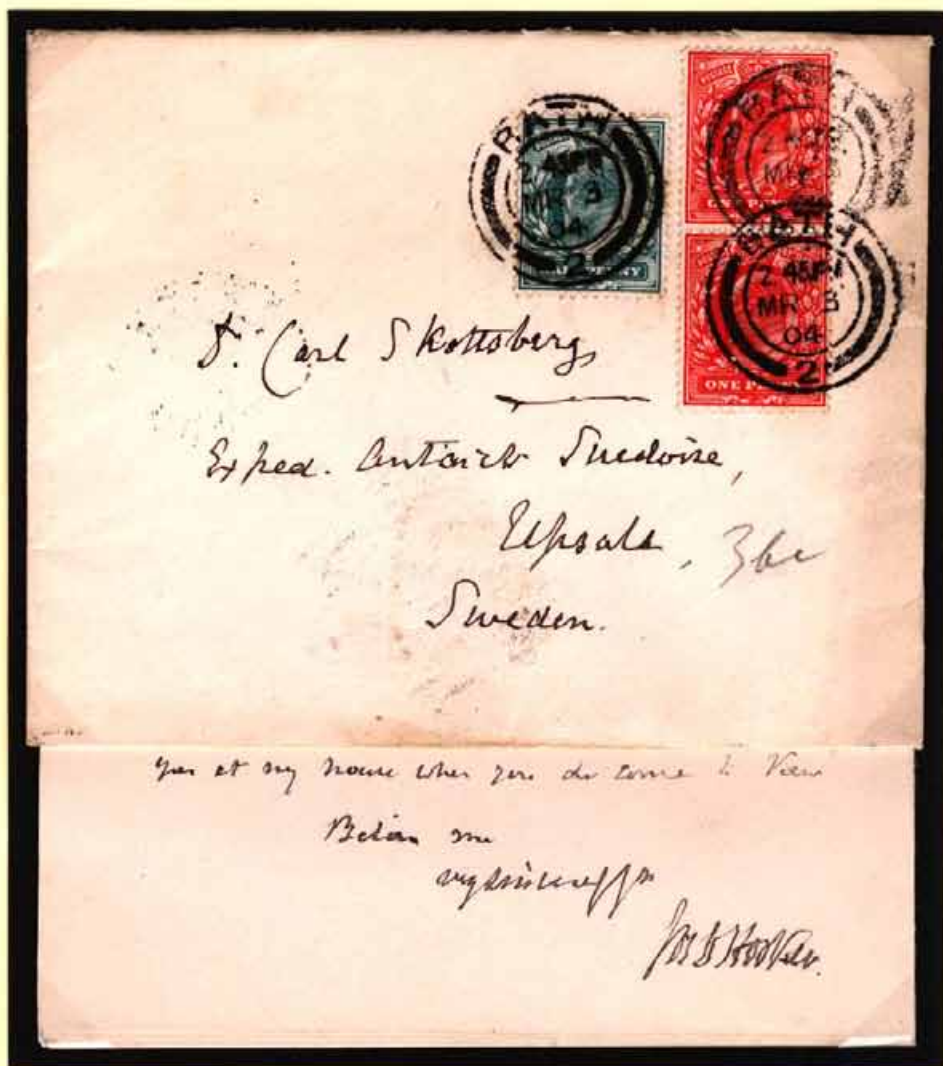 BATH
2.45PM
MR 3
04
2
HALFPENNY
BATH
MR 3
ONE PENNY
BATH
2.45PM
MR 3
04
2
ONE PENNY
Dr. Carl Skottsberg
Exped. Antarct Suedoise,
Upsala,
Sweden.
you at my house when you do come to Kew
Believe me
very sincerely yrs
Jos D Hooker.